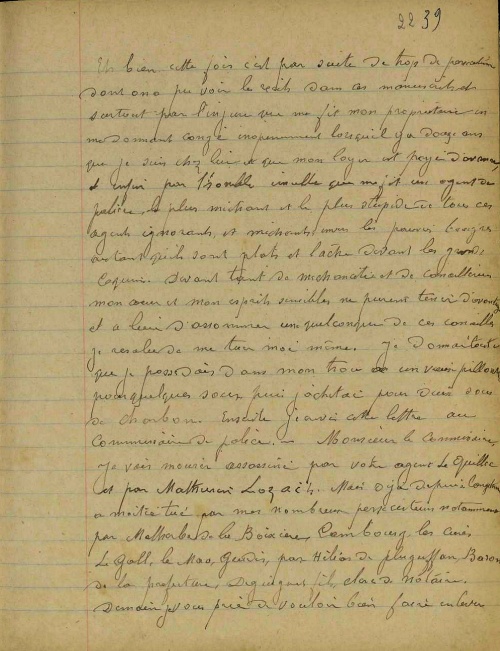 22 39
Eh bien cette fois c'est par suite de trop de
dont on a pu voir le récits dans ces manuscrits et
surtout par l'injure que me fit mon propriétaire en
me donnant congé inopinement lorsqu'il y a douze ans
que je suis chez lui et que mon loyer est payé d'avance,
et enfin par l'horrible insulte que me fit un agent de
police, le plus méchant et le plus stupide de tous ces
agents ignorants, et méchants envers les pauvres bougres
autant qu'ils sont plats et lache devant les grands
Coquins. Devant tant de mechancetés et de canailleries
mon cœur et mon esprits sensibles ne purent tenir d'avantage
et a lieu d'assommer un quelconque de ces canailles
je resolus de me tuer moi même. Je
que je possedais dans mon trou a un vieux
pour quelques sous puis j'achetai pour deux sous
de charbon. Ensuite j'ecrivi cette lettre au
Commissaire de police. — Monsieur le Commissaire,
Je vais mourir assassiné par votre agent Le Quillec
et par Mathurin Lozac'h. Mais déja depuis longtemps
a moitié tué par mes nombreux persecuteurs notamment
par Malherbe de la Boixière, Combourg, les curés
Le Gall, le Mao, par Hélias de pluguffan, Baron
de la prefecture, clerc de Notaire.
Demain je vous prie de vouloir bien faire enlever